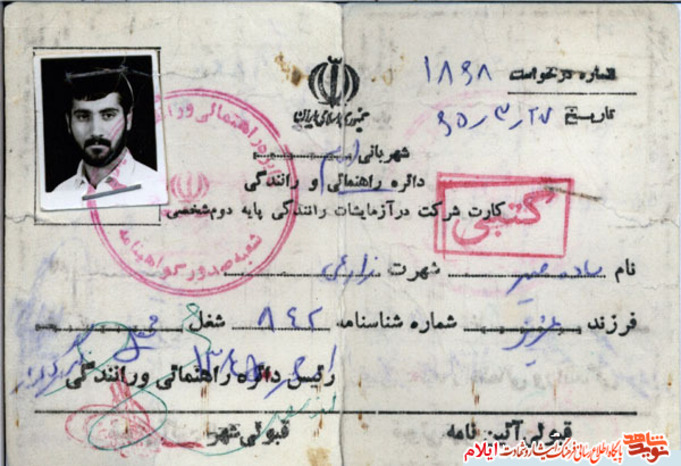 شماره درخواست ۱۸۶۸
تاریخ ۶۵/۳/۲۷
جمهوری اسلامی ایران
شهربانی
دائره راهنمائی و رانندگی
کارت شرکت درآزمایشات رانندگی پایه دوم شخصی
کتبی
دایره راهنمائی و رانندگی
شعبه صدور گواهینامه
نام شهرت زارعی
فرزند عزیز شماره شناسنامه ۸۴۲ شغل
رئیس دائره راهنمائی ورانندگی
قبولی آئین نامه قبولی شهر
نوید شاهد
پایگاه اطلاع رسانی فرهنگ ایثار و شهادت ایلام